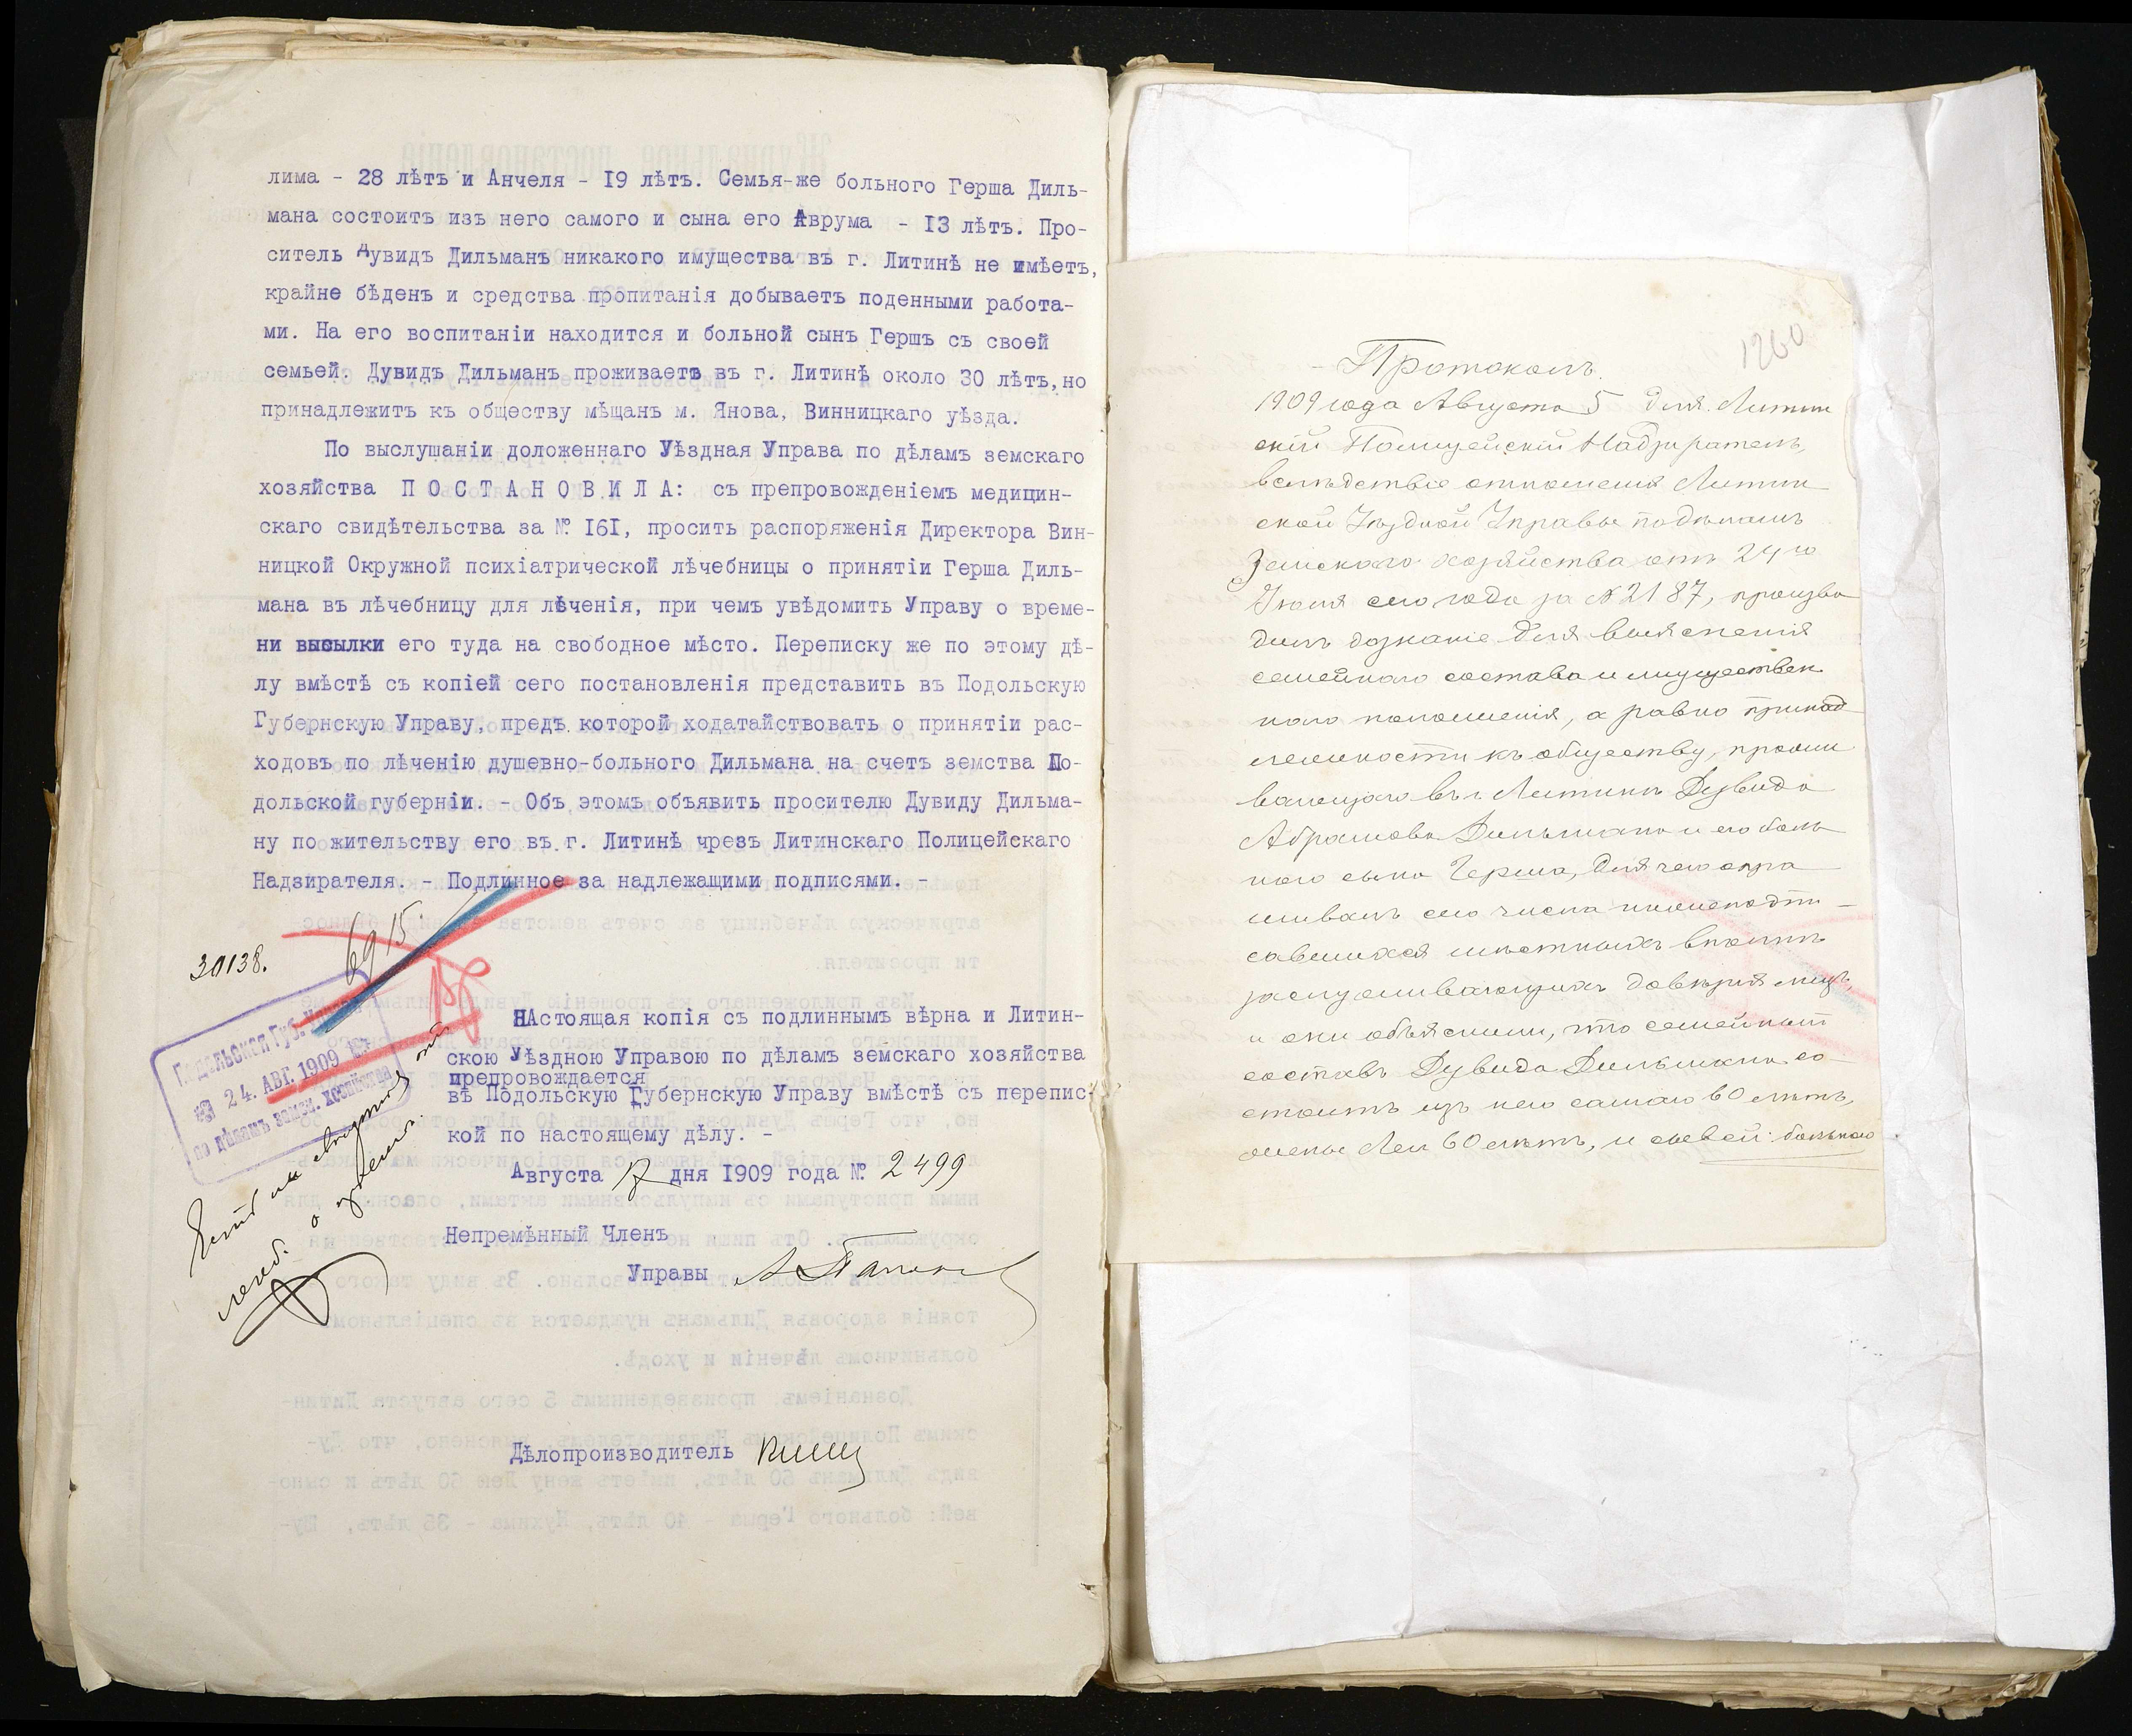 лима - 28 лѣтъ и Анчеля - I9 лѣтъ. Семья-же больного Герша Диль-
мана состоитъ изъ него самого и сына его Аврума - I3 лѣтъ. Про-
ситель Дувидъ Дильманъ никакого имущества въ г. Литинѣ не имѣетъ,
крайне бѣденъ и средства пропитанія добываетъ поденными работа-
ми. На его воспитаніи находится и больной сынъ Гершъ съ своей
семьей. Дувидъ Дильманъ проживаетъ въ г. Литинѣ около 30 лѣтъ, но
принадлежитъ къ обществу мѣщанъ м. Янова, Винницкаго уѣзда.
По выслушаніи доложеннаго Уѣздная Управа по дѣламъ земскаго
хозяйства П О С Т А Н О В И Л А: съ препровожденіемъ медицин-
скаго свидѣтельства за № I6I, просить распоряженія Директора Вин-
ницкой Окружной психіатрической лѣчебницы о принятіи Герша Диль-
мана въ лѣчебницу для лѣченія, при чемъ увѣдомить Управу о време-
ни высылки его туда на свободное мѣсто. Переписку же по этому дѣ-
лу вмѣстѣ съ копіей сего постановленія представить въ Подольскую
Губернскую Управу, предъ которой ходатайствовать о принятіи рас-
ходовъ по лѣченію душевно-больного Дильмана на счетъ земства По-
дольской губерніи. - Объ этомъ объявить просителю Дувиду Дильма-
ну по жительству его въ г. Литинѣ чрезъ Литинскаго Полицейскаго
Надзирателя. - Подлинное за надлежащими подписями. -
30138.
6915
Подольская Губ. Управа
24. АВГ. 1909
по дѣламъ земск. хозяйства
НАстоящая копія съ подлиннымъ вѣрна и Литин-
скою Уѣздною Управою по дѣламъ земскаго хозяйства
препровождается
въ Подольскую Губернскую Управу вмѣстѣ съ перепис-
кой по настоящему дѣлу. -
Августа 17 дня I909 года № 2499
Непремѣнный Членъ
Управы
Дѣлопроизводитель
1260
Протоколъ.
1909 года Августа 5 дня. Литин
скій Полицейскій Надзиратель,
вслѣдствіе отношенія Литин
ской Уѣздной Управы по дѣламъ
Земскаго хозяйства отъ 24го
Іюля сего года за № 2187, произво
дилъ дознаніе для выясненія
семейнаго состава и имуществен
наго положенія, а равно принад
лежности къ обществу, прожи
вающаго въ г. Литинѣ Дувида
Абрамова Дильмана и его боль
ного сына Герша, для чего опра
шивалъ сего числа нижеподпи-
савшихся мѣстныхъ вполнѣ
заслуживающихъ довѣрія лицъ,
и они объяснили, что семейный
составъ Дувида Дильмана со
стоитъ изъ него самаго 60 лѣтъ,
жены Леи 60 лѣтъ, и сыновей: больного